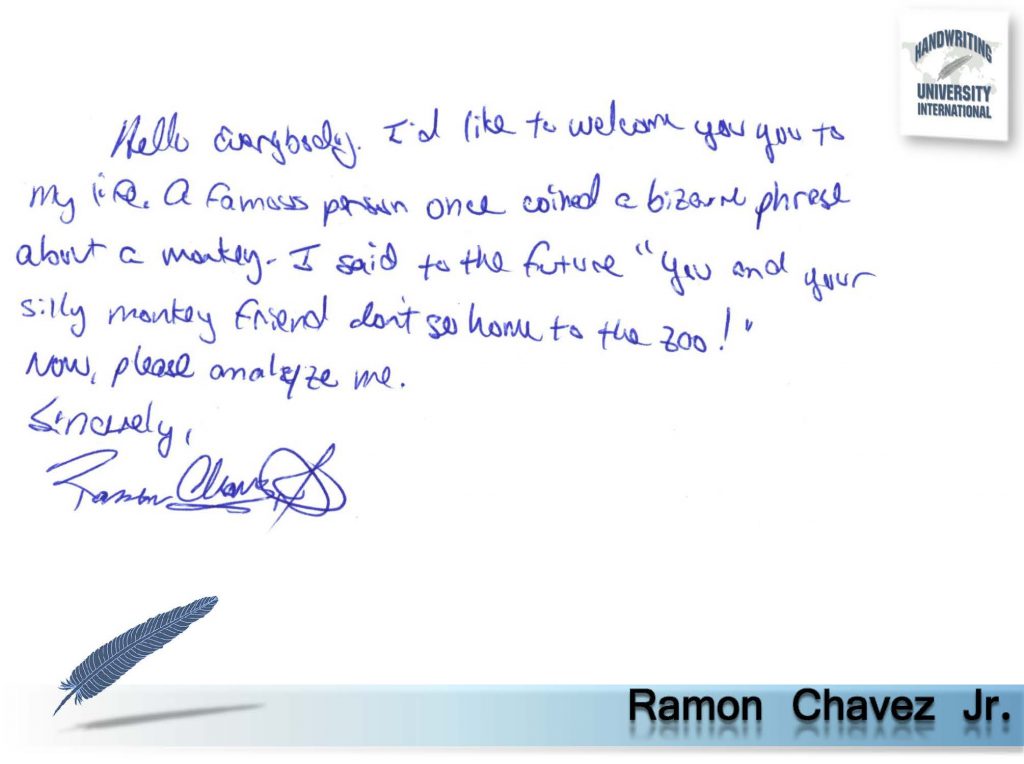 HANDWRITING
UNIVERSITY
INTERNATIONAL
Hello Everybody. I'd like to welcome you you to
my life. A famous person once coined a bizarre phrase
about a monkey. I said to the future "you and your
silly monkey friend don't go home to the zoo!"
Now, please analyze me.
Sincerely,
Ramon Chavez Jr
Ramon Chavez Jr.